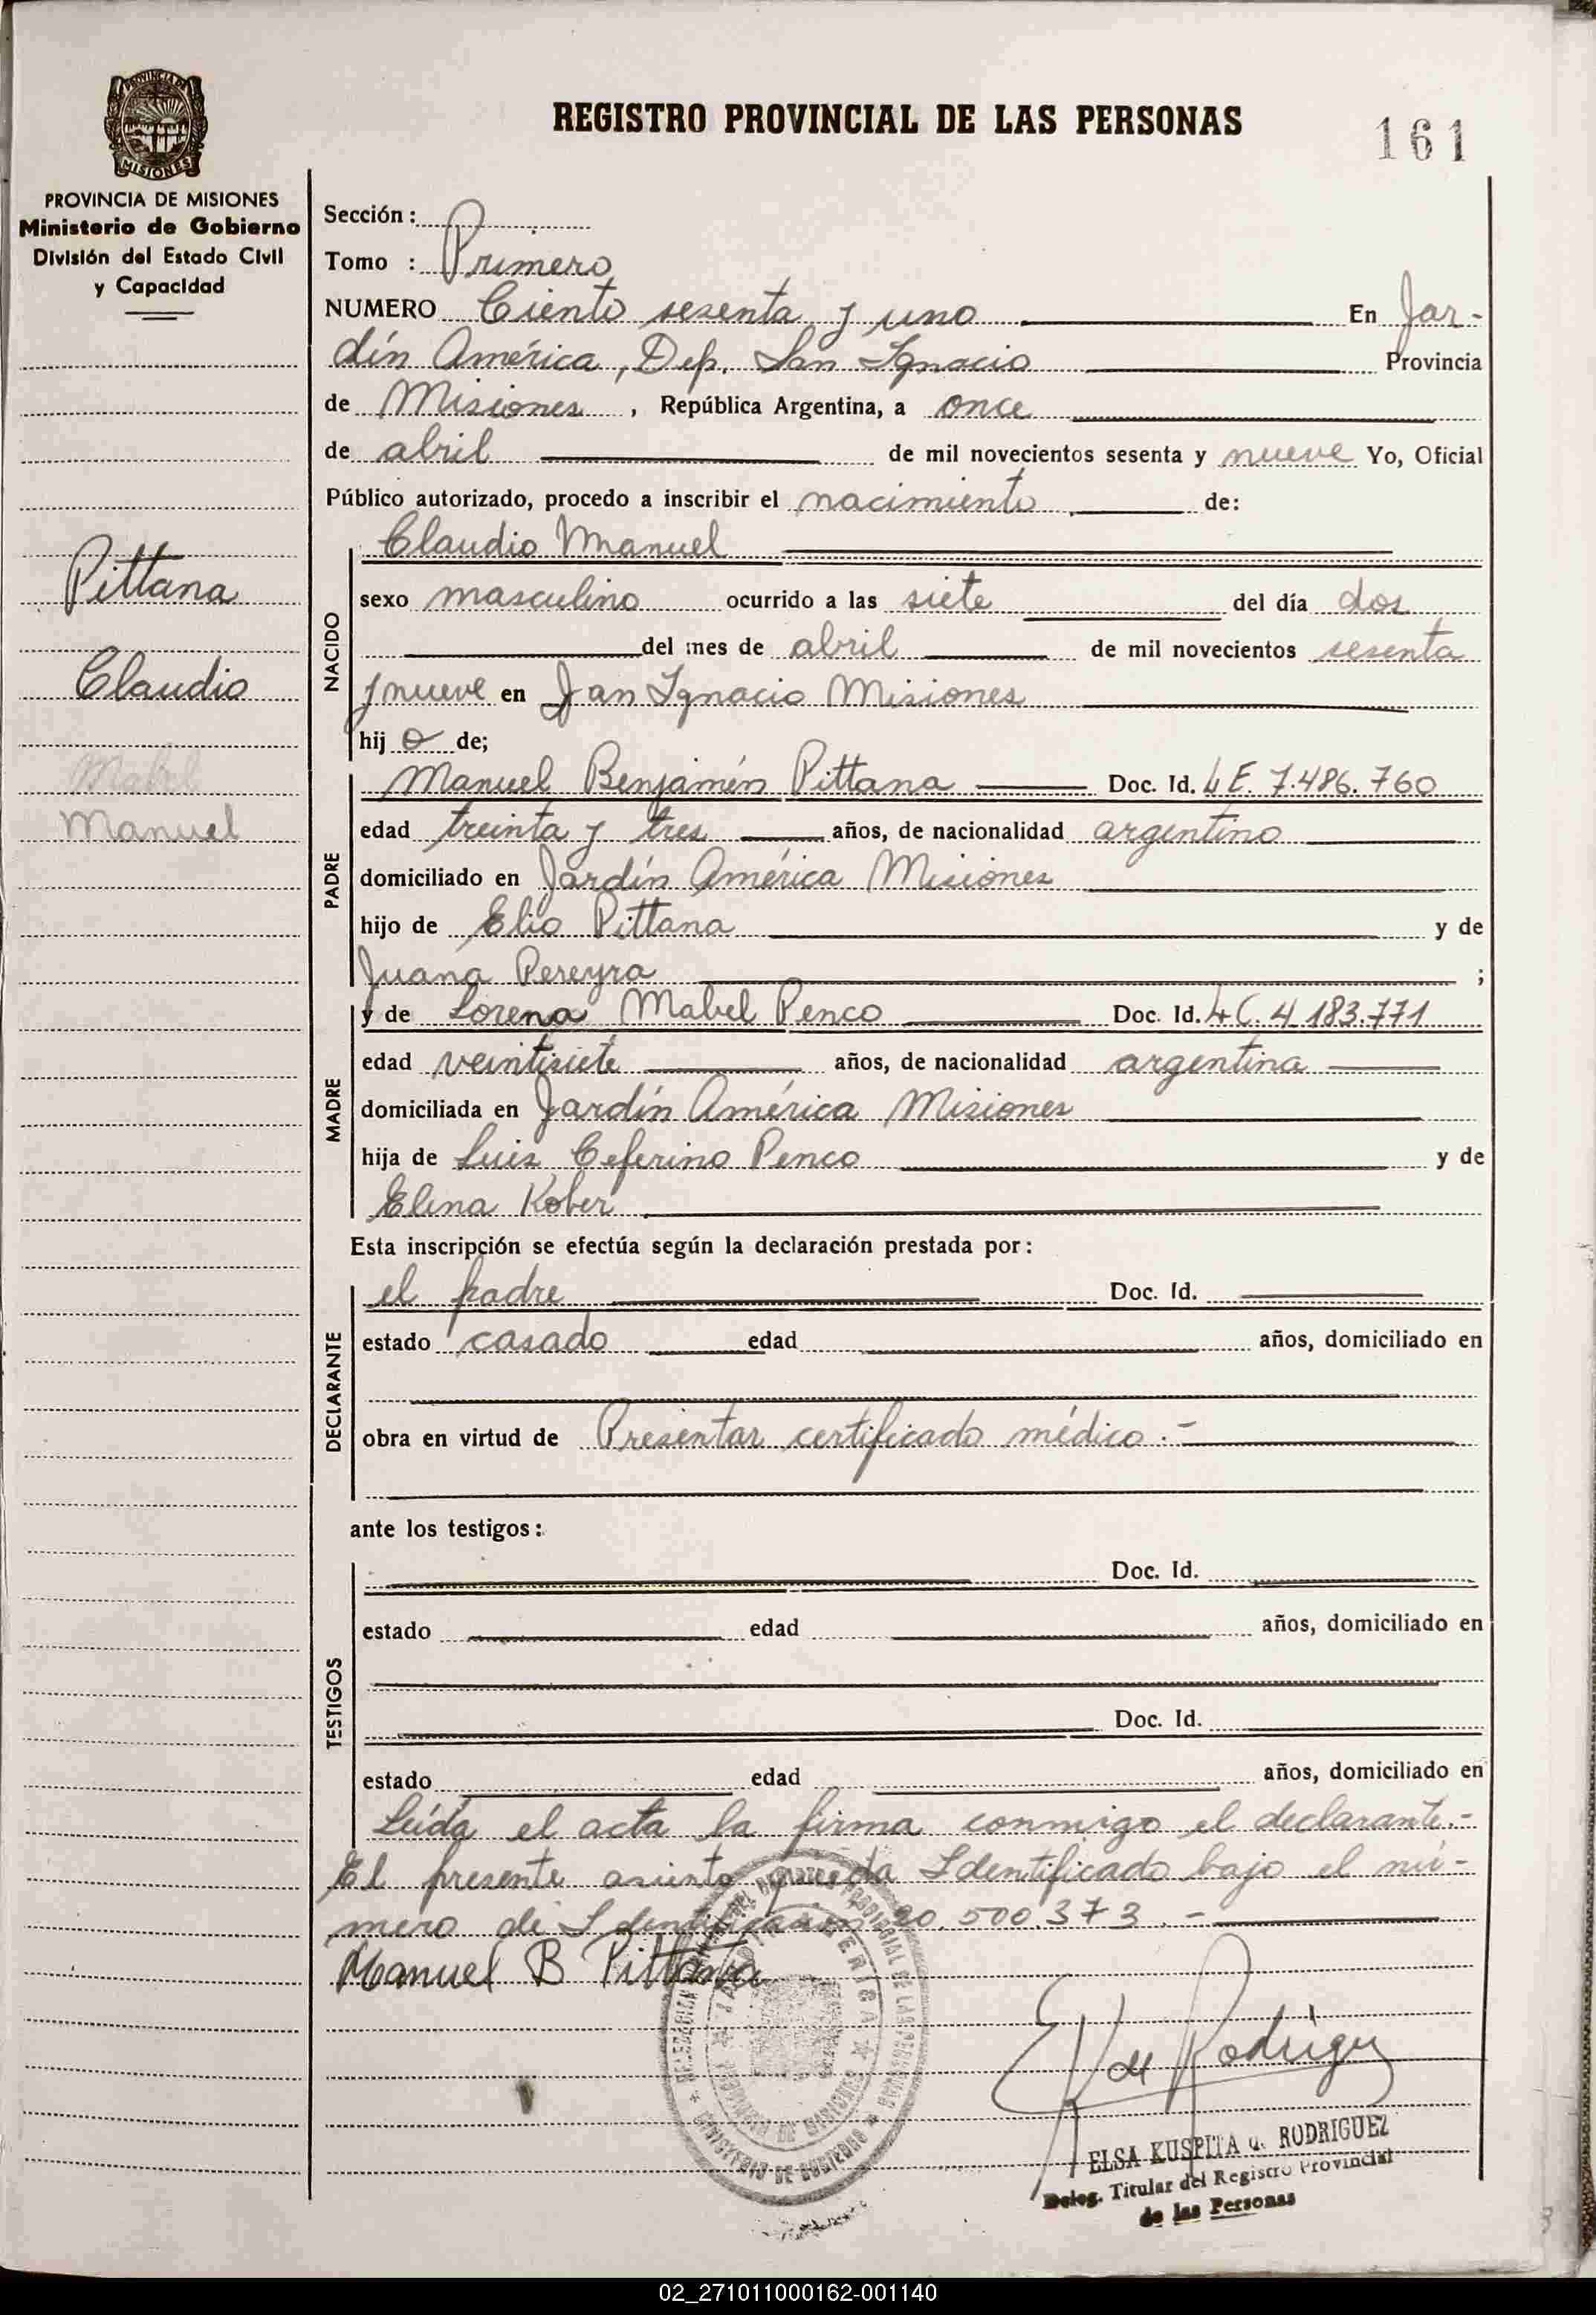 PROVINCIA DE
MISIONES
PROVINCIA DE MISIONES
Ministerio de Gobierno
División del Estado Civil
y Capacidad
REGISTRO PROVINCIAL DE LAS PERSONAS
161
Sección:
Tomo : Primero
NUMERO Ciento sesenta y uno En Jar-
dín América, Dep. San Ignacio Provincia
de Misiones, República Argentina, a once
de abril de mil novecientos sesenta y nueve Yo, Oficial
Público autorizado, procedo a inscribir el nacimiento de:
Pittana
Claudio
Mabel
Manuel
NACIDO
Claudio Manuel
sexo masculino ocurrido a las siete del día dos
del mes de abril de mil novecientos sesenta
y nueve en San Ignacio Misiones
hijo de;
PADRE
Manuel Benjamín Pittana Doc. Id. L E. 7.486.760
edad treinta y tres años, de nacionalidad argentino
domiciliado en Jardín América Misiones
hijo de Elio Pittana y de
Juana Pereyra ;
MADRE
y de Lorena Mabel Penco Doc. Id. L C. 4.183.771
edad veintisiete años, de nacionalidad argentina
domiciliada en Jardín América Misiones
hija de Luis Ceferino Penco y de
Elena Kober
Esta inscripción se efectúa según la declaración prestada por:
DECLARANTE
el padre Doc. Id.
estado casado edad años, domiciliado en
obra en virtud de Presentar certificado médico.-
ante los testigos:
TESTIGOS
Doc. Id.
estado edad años, domiciliado en
Doc. Id.
estado edad años, domiciliado en
Leída el acta la firma conmigo el declarante.-
El presente asiento queda Identificado bajo el nú-
mero de Identificación 20.500373.-
Manuel B Pittana
E K de Rodriguez
ELSA KUSPITA d. RODRIGUEZ
Deleg. Titular del Registro Provincial
de las Personas
02_271011000162-001140